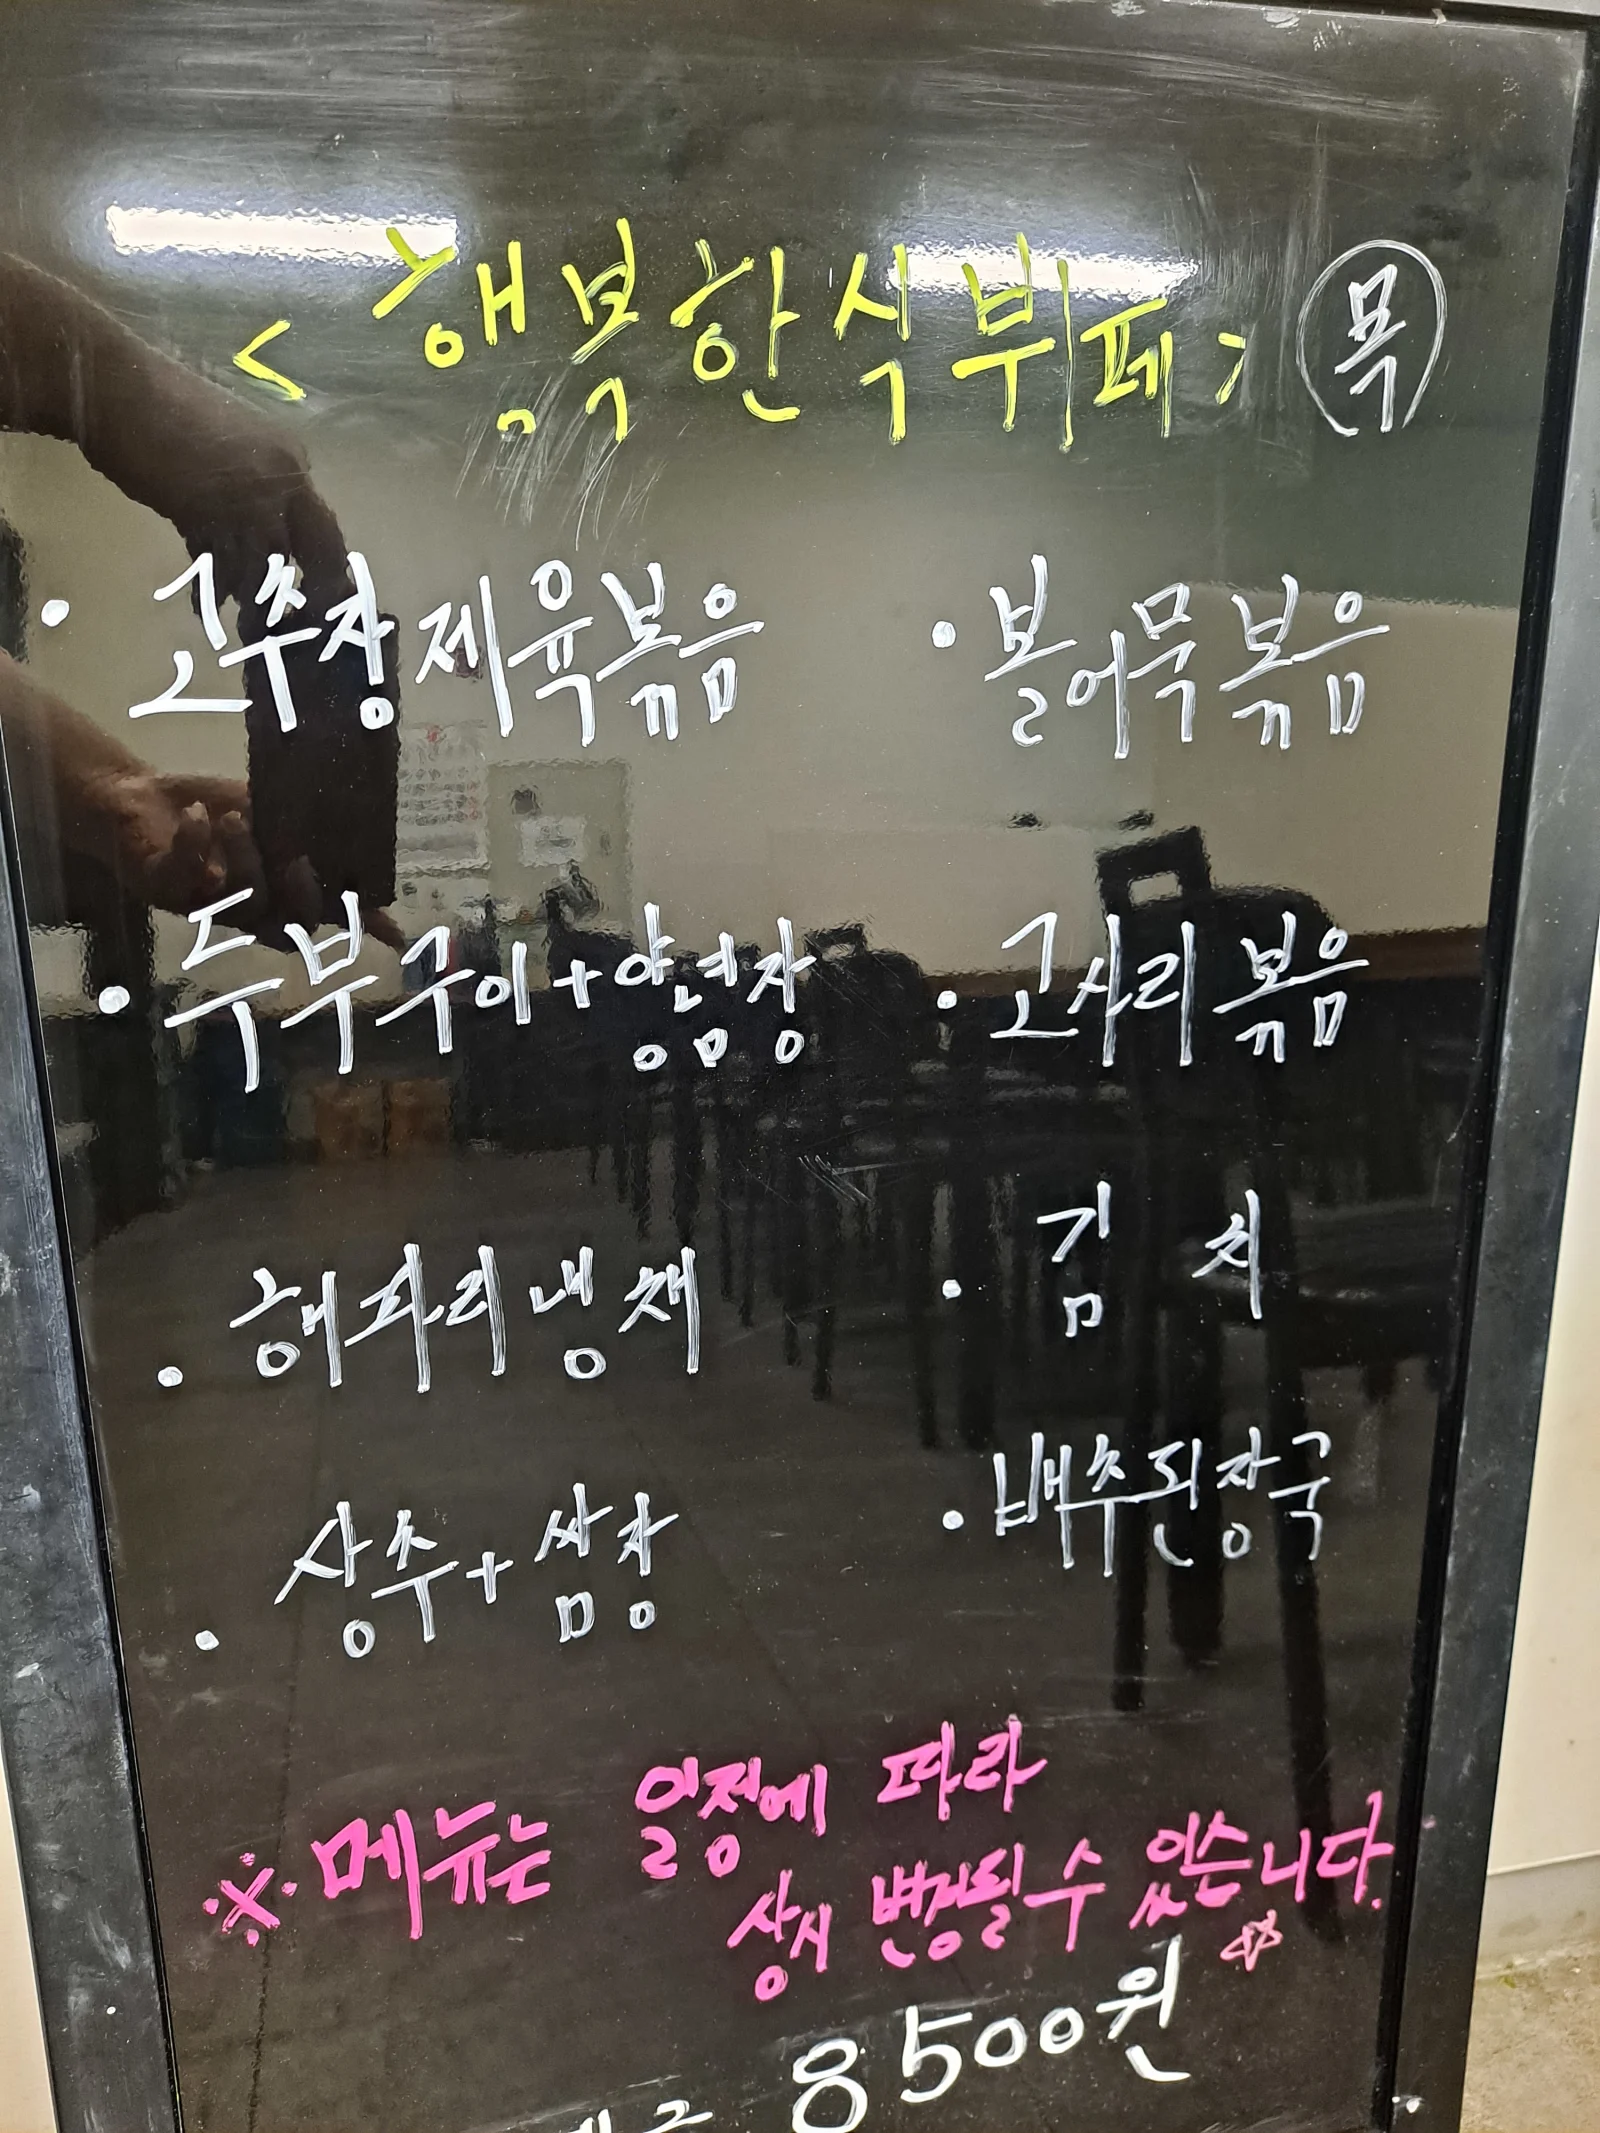 < 행복한식뷔페 > 목
• 고추장제육볶음
• 볼어묵볶음
• 두부구이+양념장
• 고사리볶음
• 해파리냉채
• 김 치
• 상추+쌈장
• 배추된장국
※ 메뉴는 일정에 따라
상시 변경될 수 있습니다.
8500원